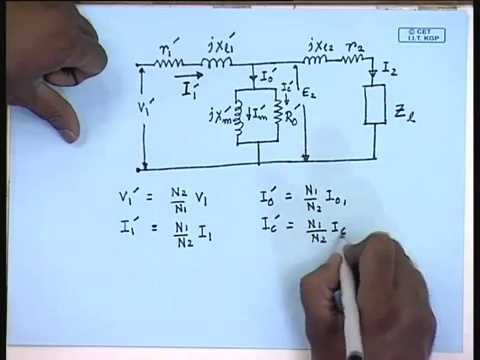 © CET
I.I.T. KGP
r₁′ jxₗ₁′ jxₗ₂ r₂
I₁′ I₀′ I₂
V₁′ jXₘ′ Iₘ′ I_c′ R₀′ E₂ Z_l
V₁′ = N₂/N₁ V₁ I₀′ = N₁/N₂ I₀,
I₁′ = N₁/N₂ I₁ I_c′ = N₁/N₂ I_c